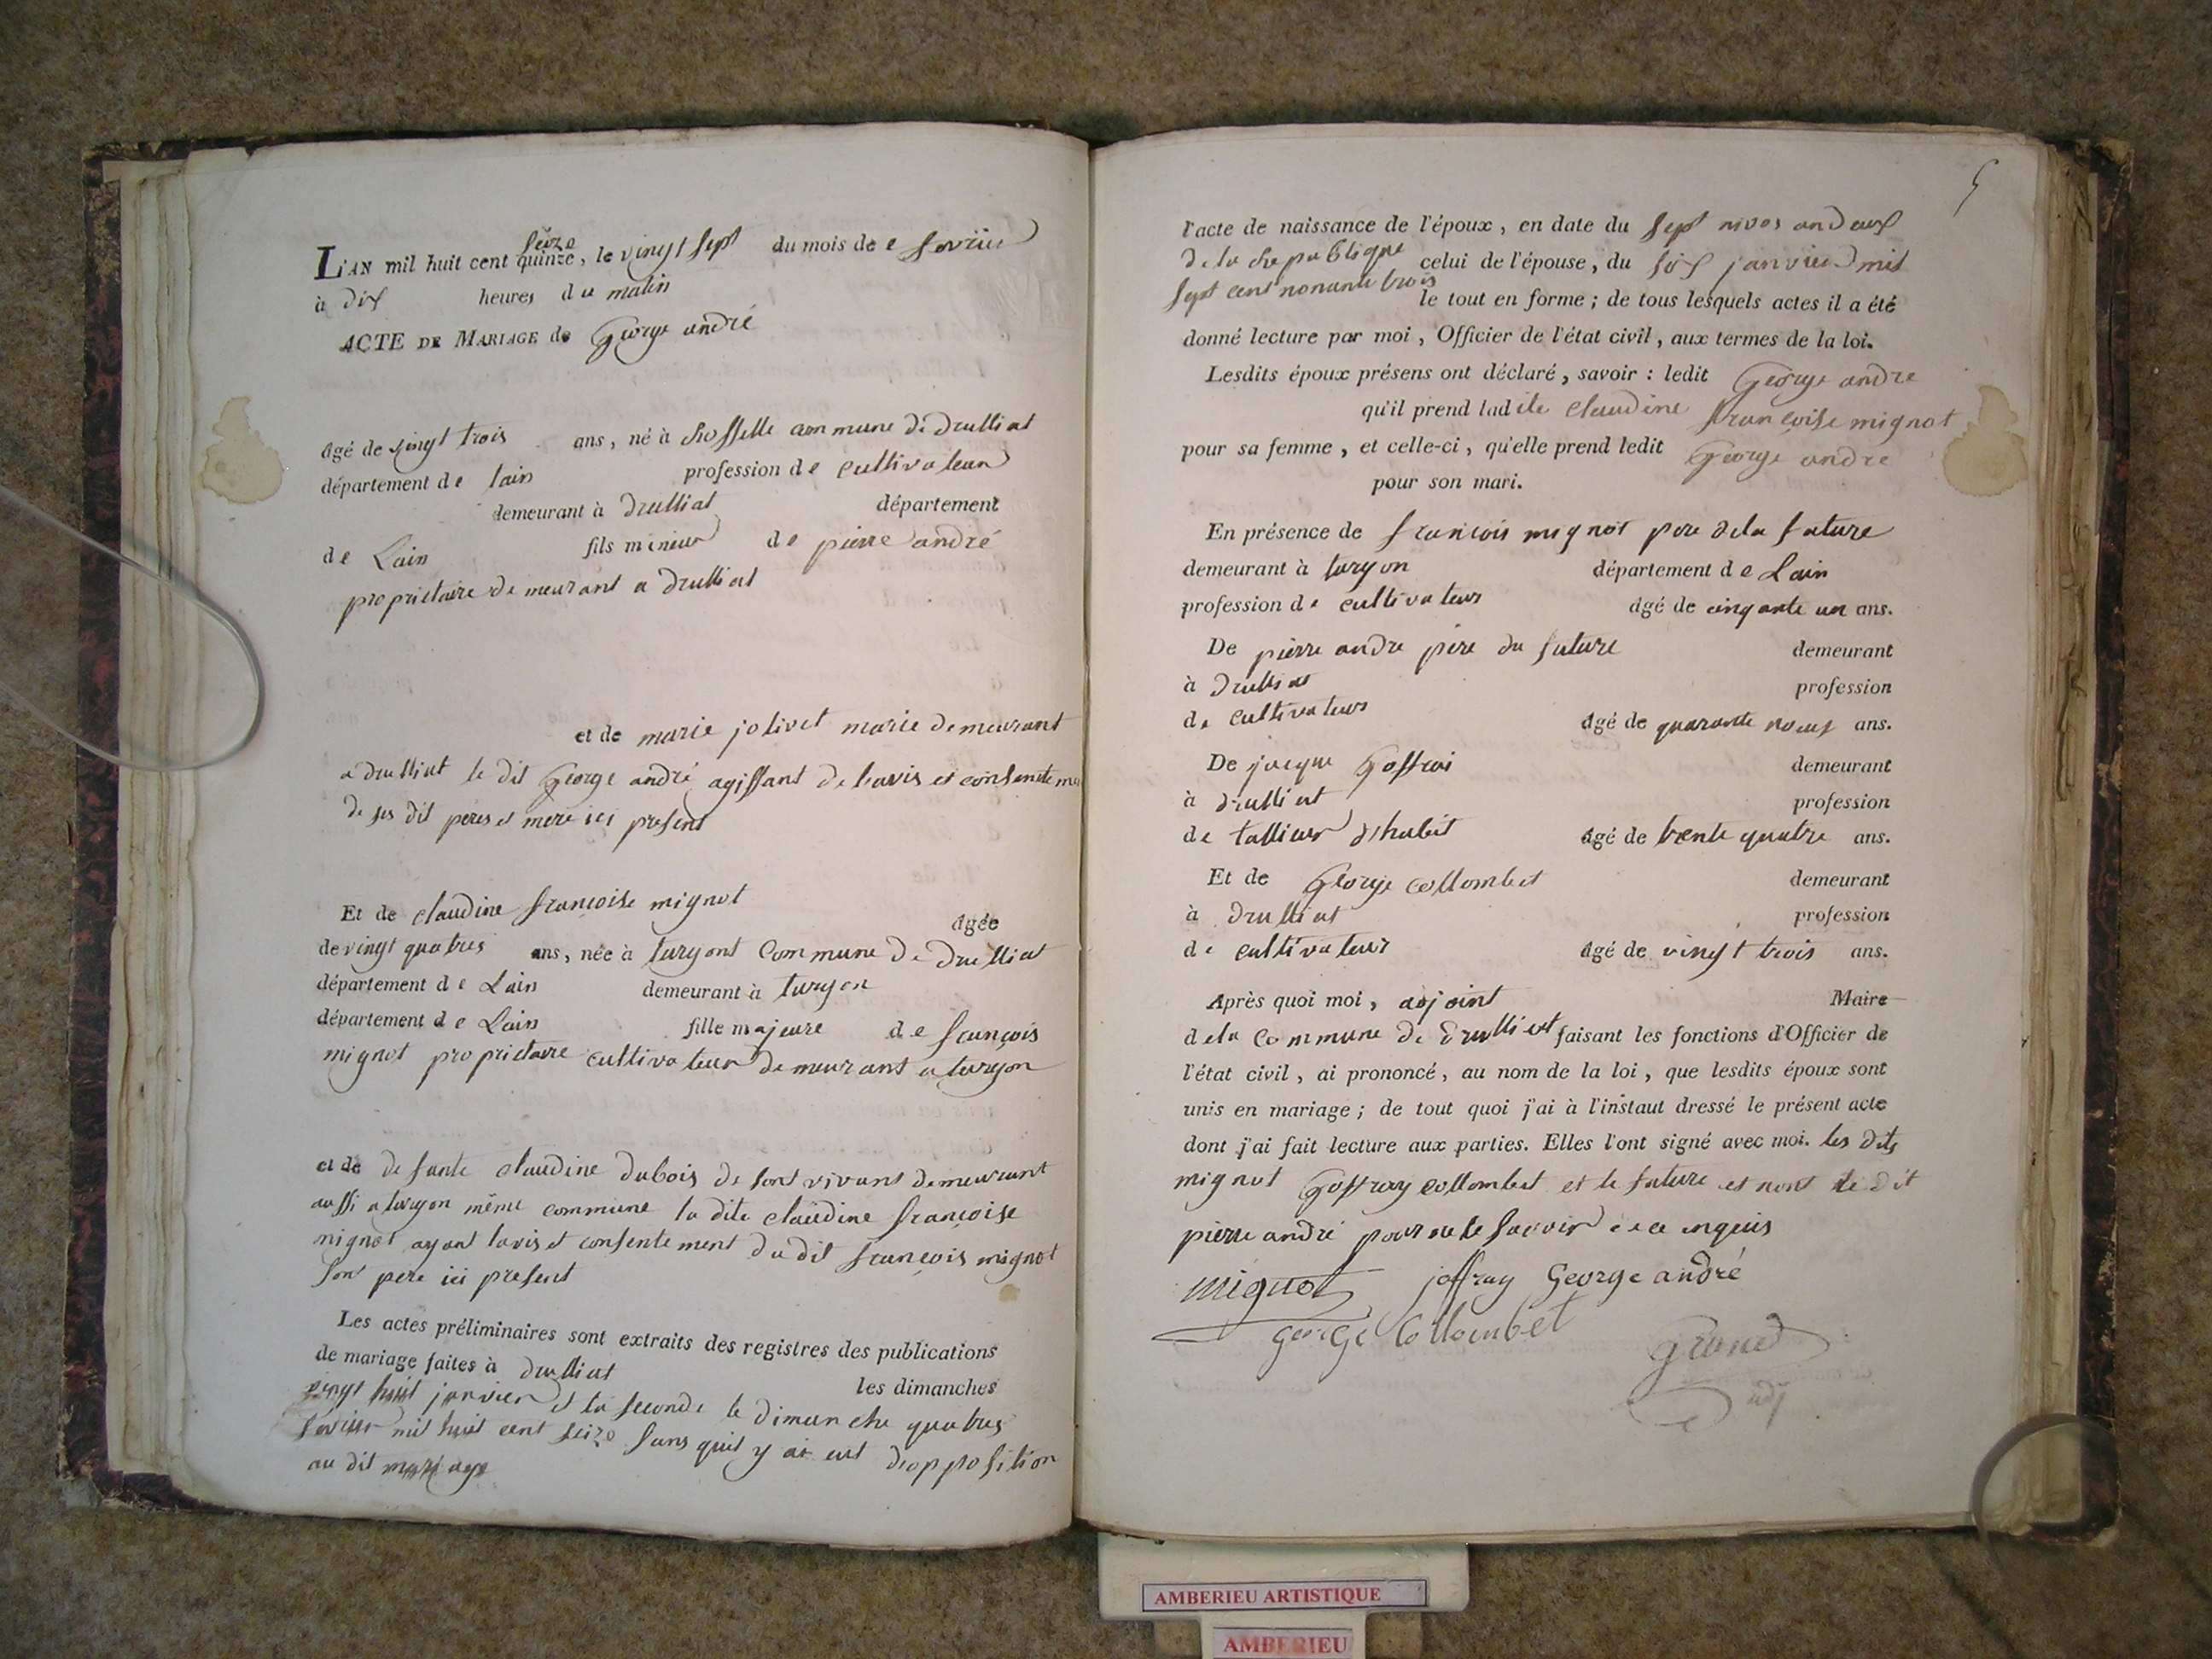 seize
L'AN mil huit cent quinze, le vingt sept du mois de e fevrier
à dix heures du matin
ACTE DE MARIAGE de George andré
âgé de vingt trois ans, né à Rosselle commune de druilliat
département de lain profession de cultivateur
demeurant à druilliat département
de Lain fils mineur de pierre andré
propriétaire demeurant a druilliat
et de marie jolivet marie demeurant
a druilliat le dit George andré agissant de lavis et consentement
de ses dit peres et mere ici present
Et de claudine françoise mignot
âgée
de vingt quatres ans, née à turgont commune de druilliat
département de Lain demeurant à turgon
département de Lain fille majeure de françois
mignot proprietaire cultivateur demeurant a turgon
et de defunte claudine dubois de sont vivant demeurant
aussi a turgon même commune la dite claudine françoise
mignot ayant lavis et consentement du dit francois mignot
son pere ici present
Les actes préliminaires sont extraits des registres des publications
de mariage faites à druilliat
les dimanches
vingt huit janvier et la seconde le dimanche quatres
fevrier mil huit cent seize sans quil y ai eut dopposition
au dit mariage
5
l'acte de naissance de l'époux, en date du sept nivos an deux
de la republique celui de l'épouse, du six janvier mil
sept cent nonante trois
le tout en forme ; de tous lesquels actes il a été
donné lecture par moi, Officier de l'état civil, aux termes de la loi.
Lesdits époux présens ont déclaré, savoir : ledit George andre
qu'il prend ladite claudine françoise mignot
pour sa femme, et celle-ci, qu'elle prend ledit George andre
pour son mari.
En présence de francois mignot pere dela future
demeurant à turgon département de Lain
profession de cultivateur âgé de cinqante un ans.
De pierre andre père du future demeurant
à druilliat profession
de cultivateur âgé de quarante noeuf ans.
De jacque Goffroi demeurant
à druilliat profession
de tallieur dhabit âgé de trente quatre ans.
Et de George collombet demeurant
à druilliat profession
de cultivateur âgé de vingt trois ans.
Après quoi moi, adjoint Maire
dela commune de druilliat faisant les fonctions d'Officier de
l'état civil, ai prononcé, au nom de la loi, que lesdits époux sont
unis en mariage ; de tout quoi j'ai à l'instaut dressé le présent acte
dont j'ai fait lecture aux parties. Elles l'ont signé avec moi. les dits
mignot Goffray collombet et le future et nont le dit
pierre andré pour ne le savoir de ce enquis
mignot joffray George andré
george Collombet
adj
AMBERIEU ARTISTIQUE
AMBERIEU